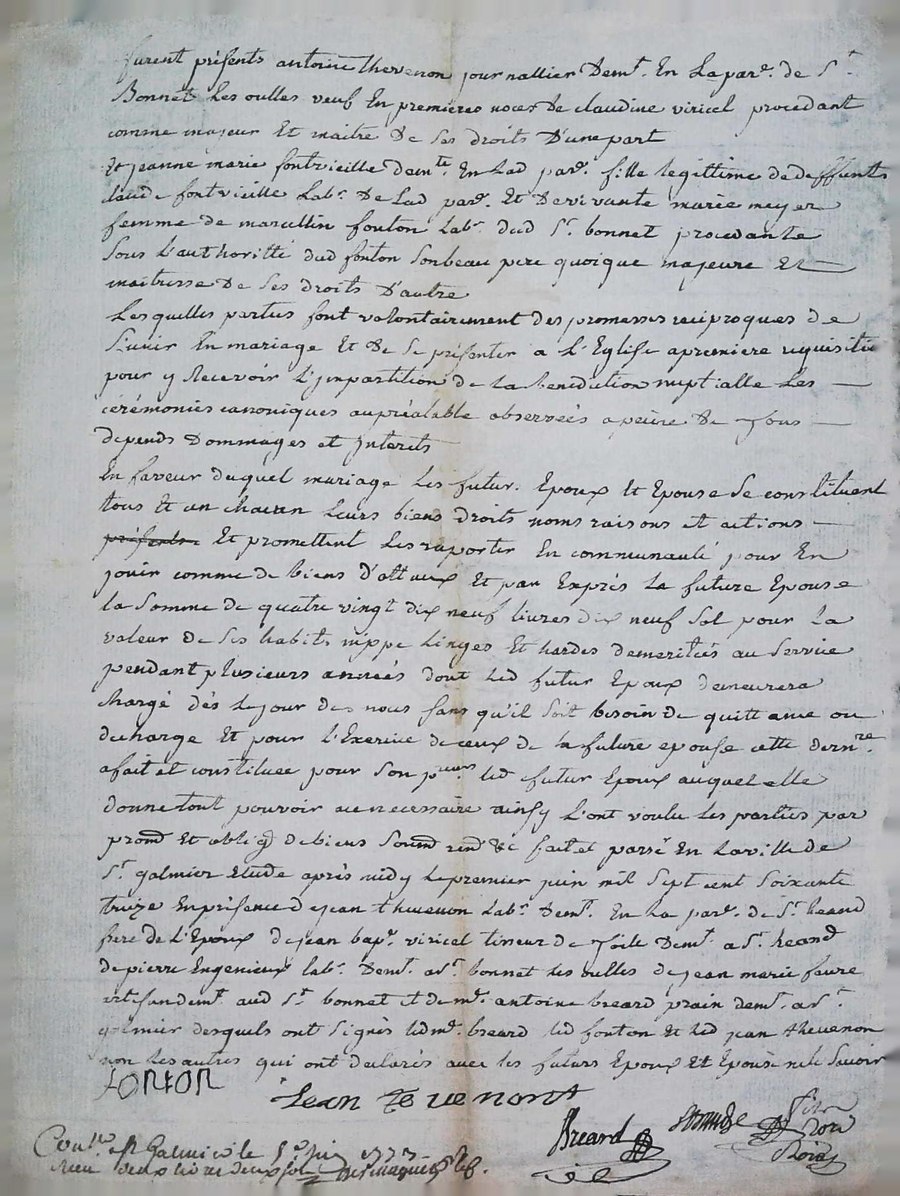 furent présents antoine thevenon journallier demt. En la parse. de St.
Bonnet les oulles veuf En premieres noces de claudine viricel procedant
comme majeur Et maitre de ses droits d'une part
Et jeanne marie fontvieille demte. En lad parse. fille legittime de deffunts
claude fontvieille labr. de lad parse. Et de vivante marie meyer
femme de marcellin fonton labr. dud St. bonnet procedante
sous l'authoritté dud fonton son beau pere quoique majeure Et
maitresse de ses droits d'autre
Lesquelles parties font volontairement des promesses reciproques de
s'unir En mariage Et de se présenter a l'Eglise a premiere requisition
pour y Recevoir l'jmpartition de la benediction nuptialle les
cérémonies canoniques au préalable observées a peine de tous
depends dommages et jnterets
En faveur duquel mariage les futur. Epoux Et Epouse se constituent
tous Et un chacun leurs biens droits noms raisons et actions
présents Et promettent les raporter En communauté pour En
jouir comme de biens d'ottaux Et par Exprés la future Epouse
la somme de quatre vingt dix neuf livres dix neuf sol pour la
valeur de ses habits nippe linges Et hardes demeritées au service
pendant plusieurs années dont led futur Epoux demeurera
chargé dés le jour des noces sans qu'il soit besoin de quittance ou
decharge Et pour l'Exercice de ceux de la future epouse cette dernre.
a fait et constituée pour son pcureur led futur Epoux auquel elle
donne tout pouvoir a ce necessaire ainsy l'ont voulu les parties par
prom Et oblig de biens soum ren &c fait et passé En la ville de
St. galmier Etude après midy le premier juin mil sept cent soixante
treize En présence de jean thevenon labr. demt. En la parse. de St. heand
frere de l'Epoux de jean bapt. viricel tineur de toile demt. a St. heand
de pierre Engenieux labr. demt. a St. bonnet les oulles de jean marie faure
artisan demt. aud St. bonnet et de me. antoine breard prain demt. a St.
galmier desquels ont signés led me. breard led fonton Et led jean thevenon
non les autres qui ont declarés avec les futurs Epoux Et Epouse ne le savoir
fonton
Jean tevenont
Breard
Conlle. a St Galmier le juin 1773
Recu deux livre deux sol